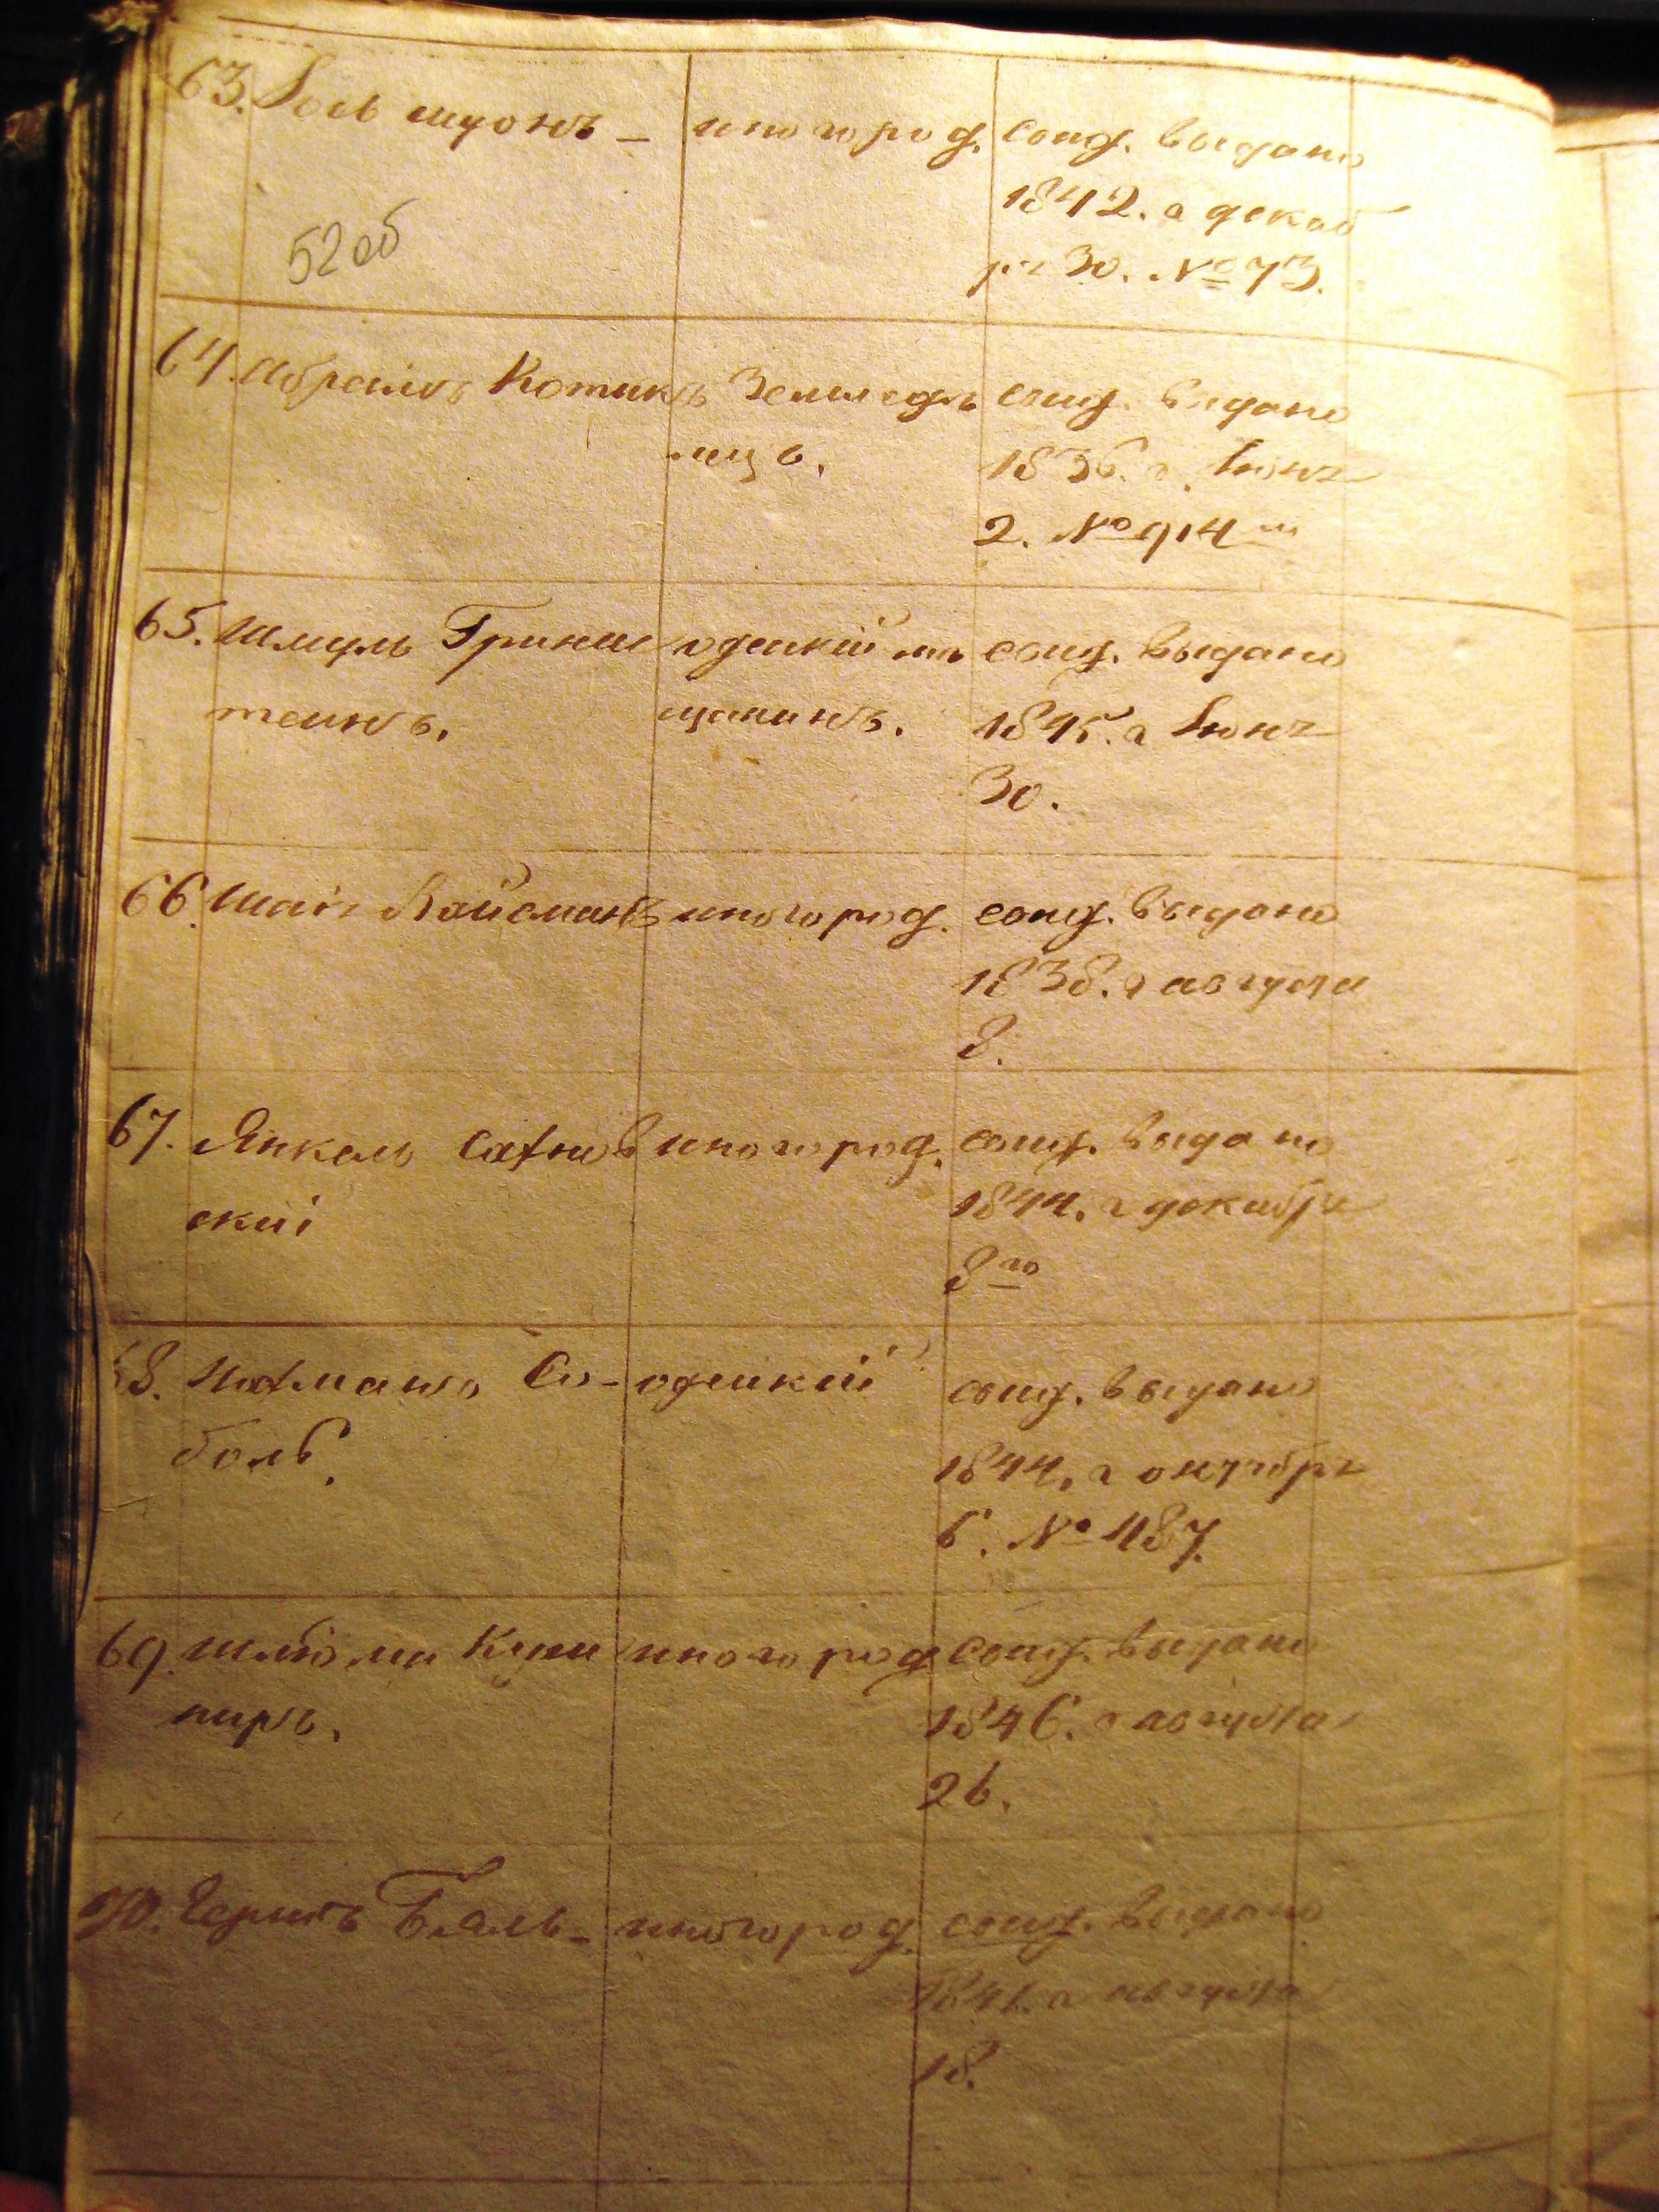 63. Іось шуонъ – иногород. свид. выдано
1842. г декаб
ря 30. № 73.
52 об
64. Абрамъ Котикъ Земледѣ свид. выдано
лецъ. 1836. г. Іюня
2. № 914
65. Шмуль Гринш одесскій мѣ свид. выдано
теинъ. щанинъ. 1845. г Іюня
30.
66. Шаія Вайсманъ иногород. свид. выдано
1838. г августа
8.
67. Янкель Сатнов иногород. свид. выдано
скій 1844. г декабря
8го
68. Нахманъ Со- одесскій свид. выдано
боль. 1844. г октября
6. № 487.
69. Шлёма Купи иногород свид. выдано
ниръ. 1846. г августа
26.
70. Гершъ Баль- иногород. свид. выдано
г августа
18.